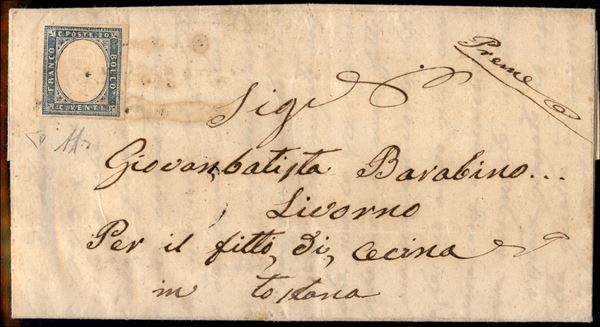 C. POSTE 20
FRANCO
BOLLO
C. VENTI
Preme
Sigr
Giovanbatista Barabino...
Livorno
Per il fitto, di, Cecina
in toscana